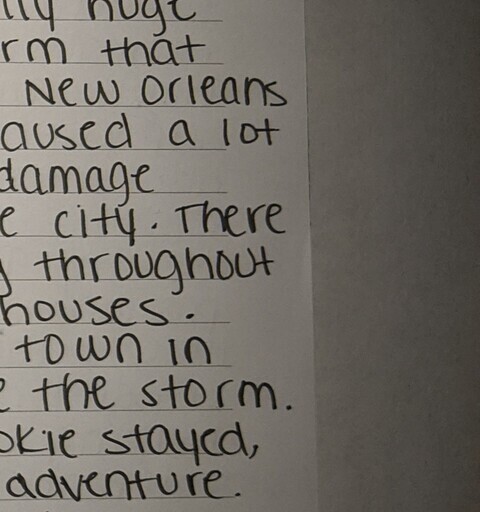 lly huge
rm that
New Orleans
aused a lot
damage
e city. There
throughout
houses.
town in
e the storm.
okie stayed,
adventure.